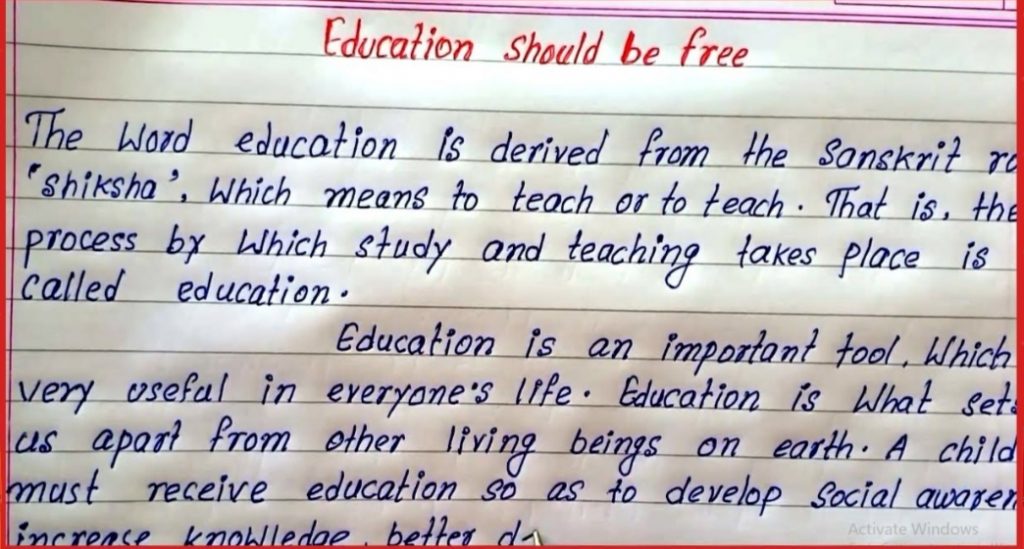 Education should be free
The Word education is derived from the Sanskrit
"shiksha", Which means to teach or to teach. That is, the
process by Which study and teaching takes place is
called education.
Education is an important tool, Which
very useful in everyone's life. Education is What sets
us apart from other living beings on earth. A child
must receive education so as to develop social
increase knowlledge, better
Activate Windows